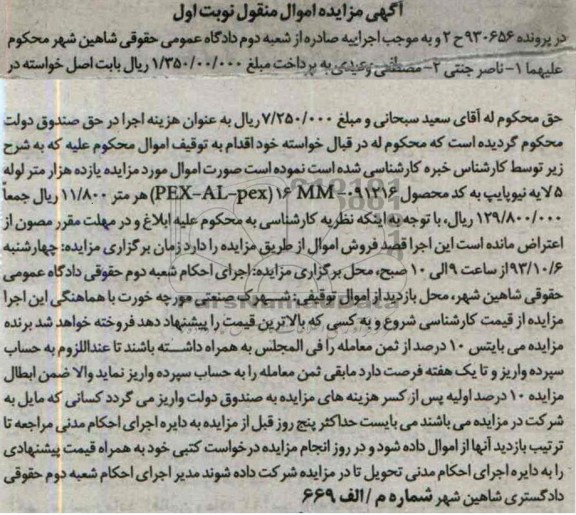 آگهی مزایده اموال منقول نوبت اول
در پرونده ۹۳۰۶۵۶ ح ۲ و به موجب اجراییه صادره از شعبه دوم دادگاه عمومی حقوقی شاهین شهر محکوم
علیهما ۱- ناصر جنتی ۲- مصطفی وعیدی به پرداخت مبلغ ۱/۳۵۰/۰۰/۰۰۰ ریال بابت اصل خواسته در
حق محکوم له آقای سعید سبحانی و مبلغ ۷/۲۵۰/۰۰۰ ریال به عنوان هزینه اجرا در حق صندوق دولت
محکوم گردیده است که محکوم له در قبال خواسته خود اقدام به توقیف اموال محکوم علیه که به شرح
زیر توسط کارشناس خبره کارشناسی شده است نموده است صورت اموال مورد مزایده یازده هزار متر لوله
۵ لایه نیوپایپ به کد محصول ۰۹۱۲۱۶- ۱۶ MM (PEX-AL-pex) هر متر ۱۱/۸۰۰ ریال جمعاً
۱۲۹/۸۰۰/۰۰۰ ریال، با توجه به اینکه نظریه کارشناسی به محکوم علیه ابلاغ و در مهلت مقرر مصون از
اعتراض مانده است این اجرا قصد فروش اموال از طریق مزایده را دارد زمان برگزاری مزایده: چهارشنبه
۹۳/۱۰/۶ از ساعت ۹ الی ۱۰ صبح، محل برگزاری مزایده: اجرای احکام شعبه دوم حقوقی دادگاه عمومی
حقوقی شاهین شهر، محل بازدید از اموال توقیفی: شهرک صنعتی مورچه خورت با هماهنگی این اجرا
مزایده از قیمت کارشناسی شروع و به کسی که بالاترین قیمت را پیشنهاد دهد فروخته خواهد شد برنده
مزایده می بایتس ۱۰ درصد از ثمن معامله را فی المجلس به همراه داشته باشند تا عنداللزوم به حساب
سپرده واریز و تا یک هفته فرصت دارد مابقی ثمن معامله را به حساب سپرده واریز نماید والا ضمن ابطال
مزایده ۱۰ درصد اولیه پس از کسر هزینه های مزایده به صندوق دولت واریز می گردد کسانی که مایل به
شرکت در مزایده می باشند می بایست حداکثر پنج روز قبل از مزایده به دایره اجرای احکام مدنی مراجعه تا
ترتیب بازدید آنها از اموال داده شود و در روز انجام مزایده درخواست کتبی خود به همراه قیمت پیشنهادی
را به دایره اجرای احکام مدنی تحویل تا در مزایده شرکت داده شوند مدیر اجرای احکام شعبه دوم حقوقی
دادگستری شاهین شهر شماره م / الف ۶۶۹